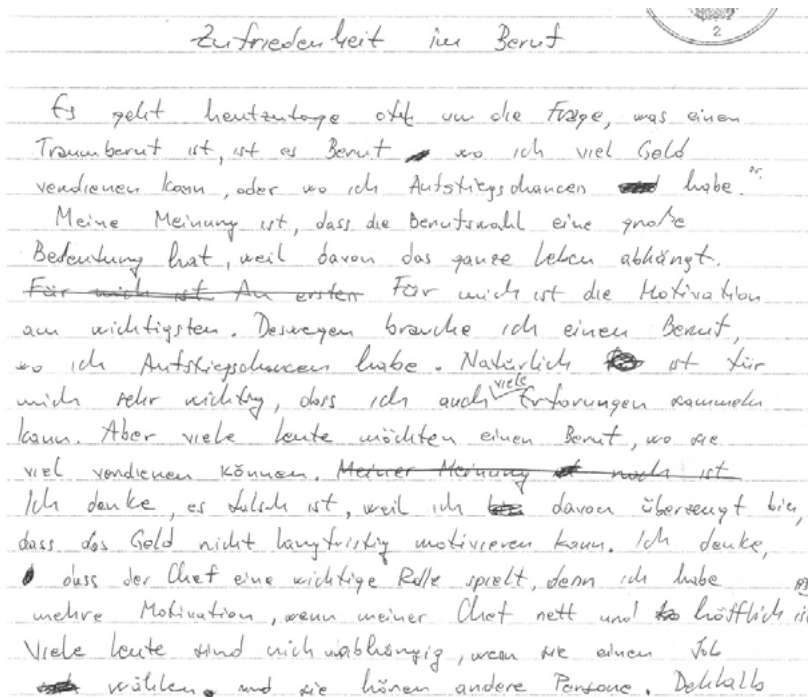 Zufriedenheit im Beruf
2
Es geht heutzutage oft um die Frage, was einen
Traumberuf ist, ist es Beruf wo ich viel Geld
verdienen kann, oder wo ich Aufstiegschancen habe.
Meine Meinung ist, dass die Berufswahl eine große
Bedeutung hat, weil davon das ganze Leben abhängt.
Für mich ist An ersten Für mich ist die Motivation
am wichtigsten. Deswegen brauche ich einen Beruf,
wo ich Aufstiegschancen habe. Natürlich ist für
mich sehr wichtig, dass ich auch viele Erfarungen sammeln
kann. Aber viele Leute möchten einen Beruf, wo sie
viel verdienen können. Meiner Meinung nach ist
Ich denke, es falsch ist, weil ich davon überzeugt bin,
dass das Geld nicht langfristig motivieren kann. Ich denke,
dass der Chef eine wichtige Rolle spielt, denn ich habe
mehre Motivation, wenn meiner Chef nett und höfflich ist
Viele Leute sind nich unabhängig, wenn sie einen Job
wählen und sie hören andere Persone. Dehhalb